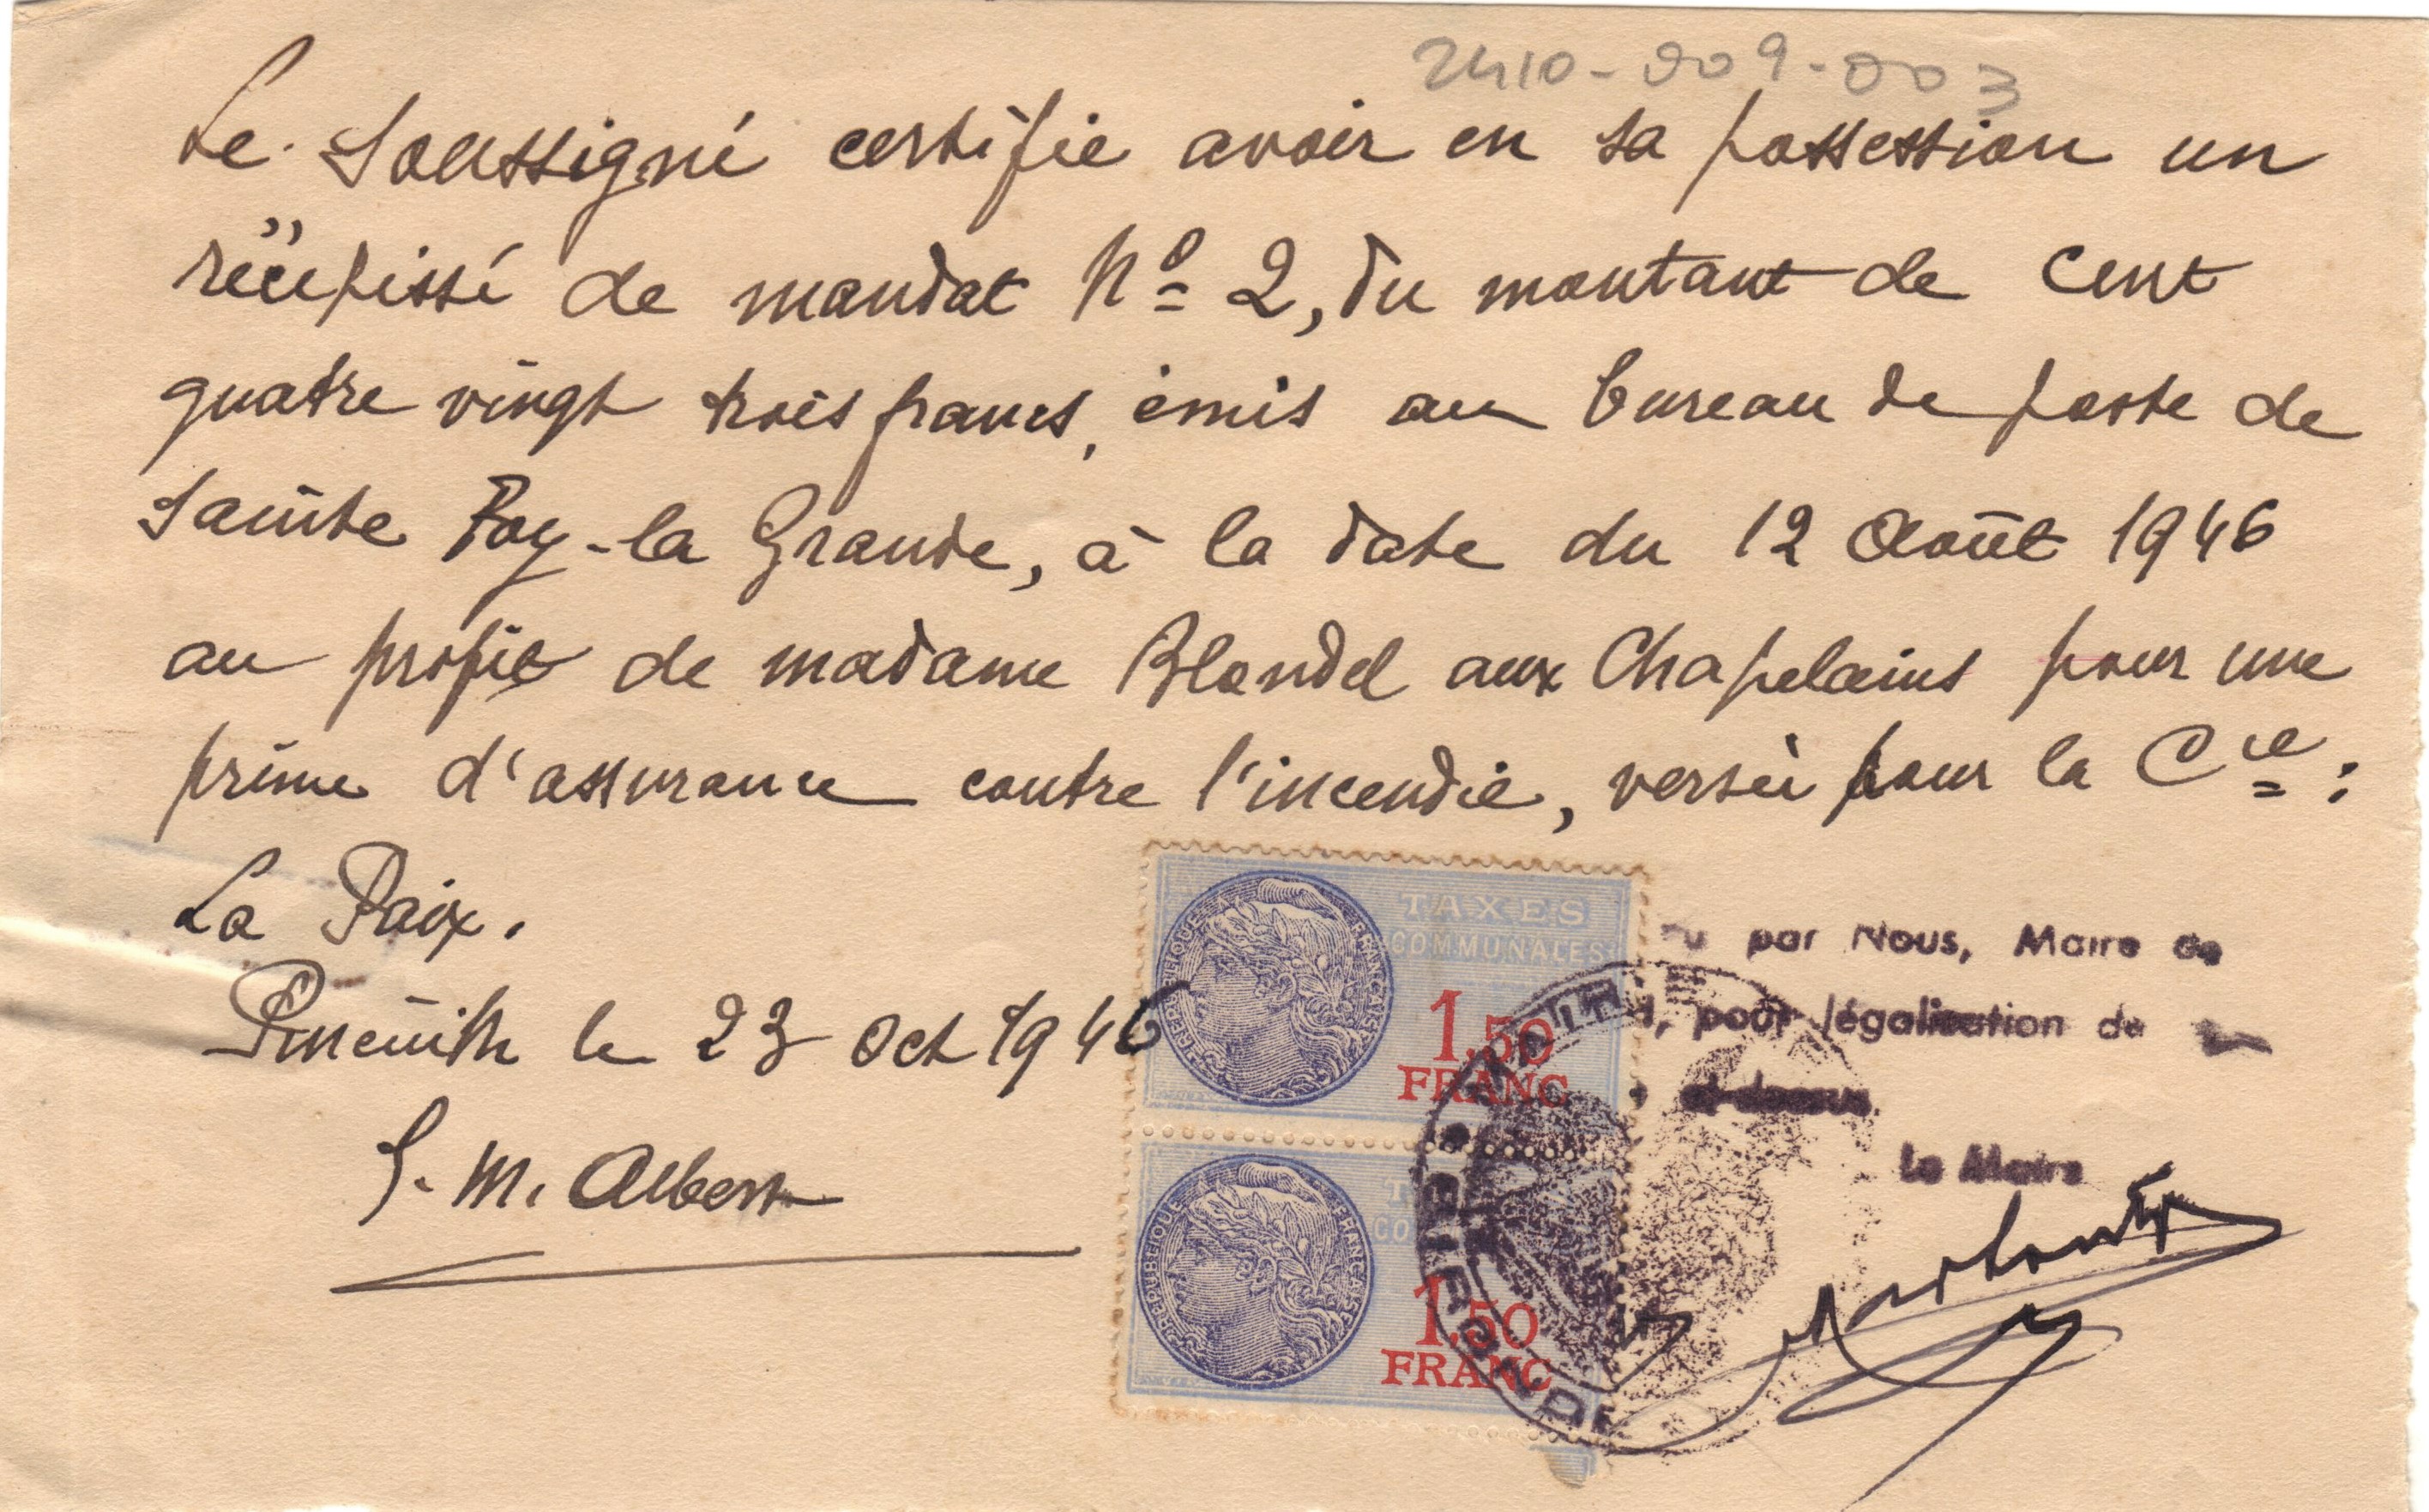 2410-009-003
Le Soussigné certifie avoir en sa possession un
récépissé de mandat Nº 2, du montant de cent
quatre vingt trois francs, émis au bureau de poste de
Sainte Foy-la Grande, à la date du 12 Août 1946
au profit de madame Blondel aux Chapelains pour une
prime d'assurance contre l'incendie, versée pour la Cie :
La Paix.
Pineuilh le 23 Oct 1946
G. M. Albert
TAXES
COMMUNALES
REPUBLIQUE FRANÇAISE
1.50
FRANC
REPUBLIQUE FRANÇAISE
1.50
FRANC
Vu par Nous, Maire de
pour légalisation de
ci-dessus.
Le Maire
MAIRIE
GIRONDE